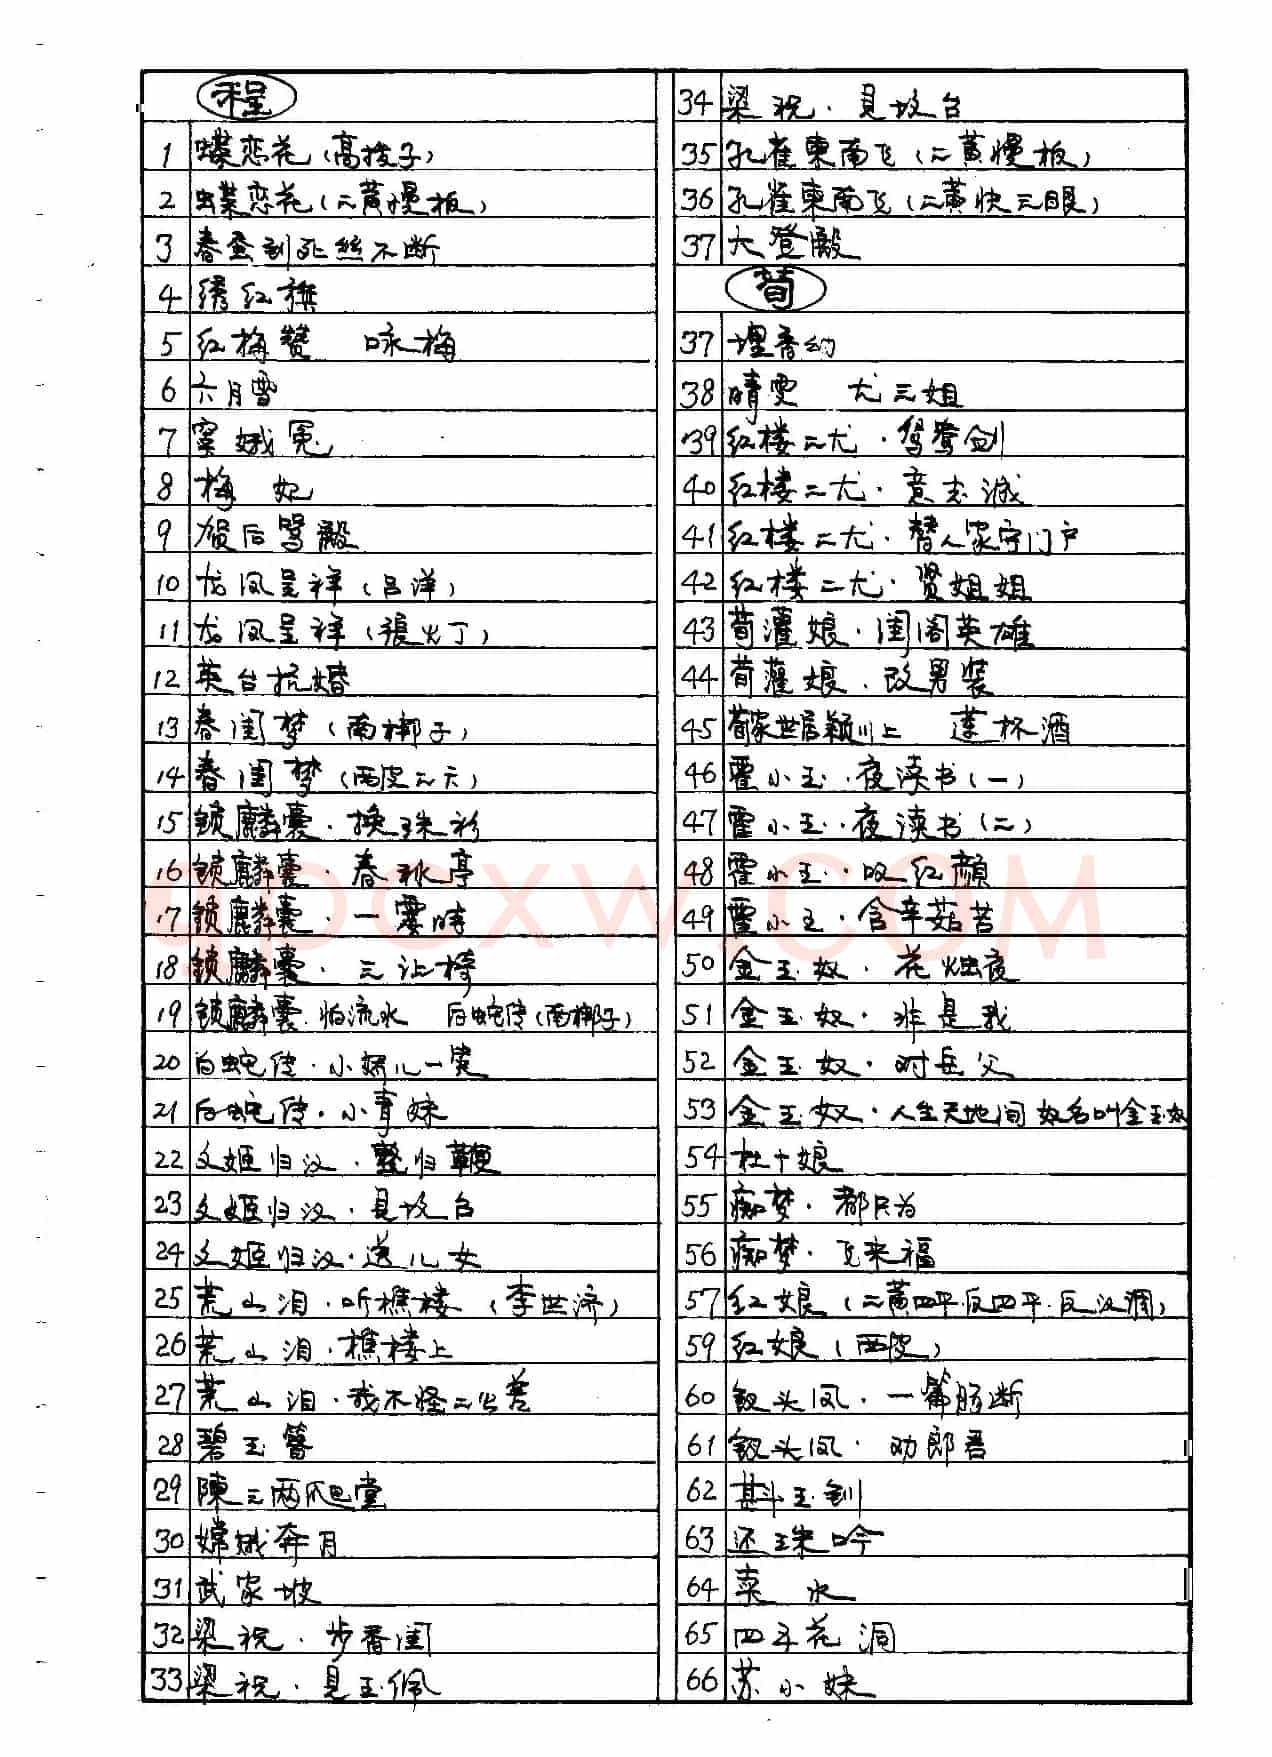 程
1 蝶恋花(高拨子)
2 蝶恋花(二黄慢板)
3 春蚕到死丝不断
4 绣红旗
5 红梅赞 咏梅
6 六月雪
7 窦娥冤
8 梅 妃
9 贺后骂殿
10 龙凤呈祥(吕洋)
11 龙凤呈祥(張火丁)
12 英台抗婚
13 春闺梦(南梆子)
14 春闺梦(西皮二六)
15 锁麟囊·换珠衫
16 锁麟囊·春秋亭
17 锁麟囊·一霎時
18 锁麟囊·三让椅
19 锁麟囊·怕流水 白蛇传(南梆子)
20 白蛇传·小娇儿一笑
21 白蛇传·小青妹
22 文姬归汉·整归鞭
23 文姬归汉·見坟台
24 文姬归汉·送儿女
25 荒山泪·听樵楼(李世济)
26 荒山泪·樵楼上
27 荒山泪·我不怪二公差
28 碧玉簪
29 陳三两爬堂
30 嫦娥奔月
31 武家坡
32 梁祝·步香闺
33 梁祝·見玉佩
34 梁祝·見坟台
35 孔雀東南飞(二黄慢板)
36 孔雀東南飞(二黄快三眼)
37 大登殿
荀
37 埋香幻
38 晴雯 尤三姐
39 红楼二尤·鸳鸯剑
40 红楼二尤·意志减
41 红楼二尤·替人家守门户
42 红楼二尤·贤姐姐
43 荀灌娘·闺阁英雄
44 荀灌娘·改男装
45 荀家世居颖川上 莲杯酒
46 霍小玉·夜读书(一)
47 霍小玉·夜读书(二)
48 霍小玉·叹红颜
49 霍小玉·含辛茹苦
50 金玉奴·花烛夜
51 金玉奴·非是我
52 金玉奴·对岳父
53 金玉奴·人生天地间 奴名叫金玉奴
54 杜十娘
55 痴梦·都只为
56 痴梦·飞来福
57 红娘(二黄四平·反四平·反汉调)
59 红娘(西皮)
60 钗头凤·一篇肠断
61 钗头凤·劝郎君
62 斟斗玉钏
63 还珠吟
64 卖 水
65 四平花洞
66 苏小妹